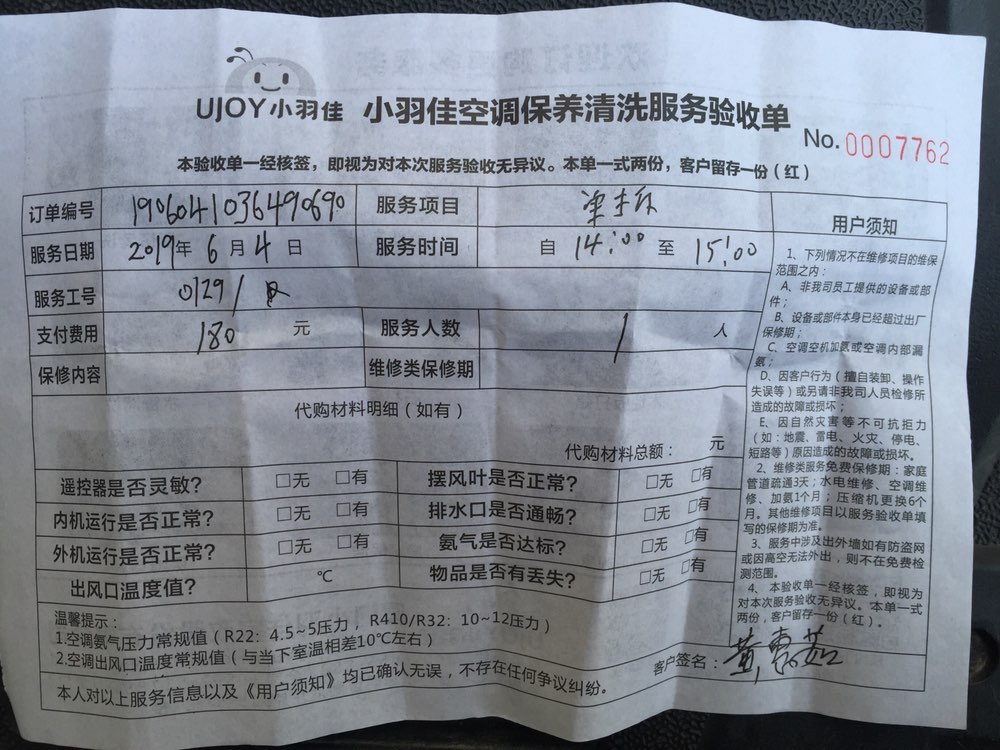 UJOY小羽佳 小羽佳空调保养清洗服务验收单
No. 0007762
本验收单一经核签，即视为对本次服务验收无异议。本单一式两份，客户留存一份（红）
订单编号 1906041036490690 服务项目
服务日期 2019年 6 月 4 日 服务时间 自 14:00 至 15:00
服务工号 0129/
支付费用 180 元 服务人数 1 人
保修内容 维修类保修期
代购材料明细（如有）
代购材料总额： 元
遥控器是否灵敏？ □无 □有 摆风叶是否正常？ □无 □有
内机运行是否正常？ □无 □有 排水口是否通畅？ □无 □有
外机运行是否正常？ □无 □有 氨气是否达标？ □无 □有
出风口温度值？ ℃ 物品是否有丢失？ □无 □有
温馨提示：
1.空调氨气压力常规值（R22：4.5~5压力，R410/R32：10~12压力）
2.空调出风口温度常规值（与当下室温相差10℃左右）
本人对以上服务信息以及《用户须知》均已确认无误，不存在任何争议纠纷。
客户签名：
用户须知
1、下列情况不在维修项目的维保
范围之内：
A、非我司员工提供的设备或部
件；
B、设备或部件本身已经超过出厂
保修期；
C、空调空机加氨或空调内部漏
氨；
D、因客户行为（擅自装卸、操作
失误等）或另请非我司人员检修所
造成的故障或损坏；
E、因自然灾害等不可抗拒力
（如：地震、雷电、火灾、停电、
短路等）原因造成的故障或损坏。
2、维修类服务免费保修期：家庭
管道疏通3天；水电维修、空调维
修、加氨1个月；压缩机更换6个
月。其他维修项目以服务验收单填
写的保修期为准。
3、服务中涉及出外墙如有防盗网
或因高空无法外出，则不在免费检
测范围。
4、本验收单一经核签，即视为
对本次服务验收无异议。本单一式
两份，客户留存一份（红）。